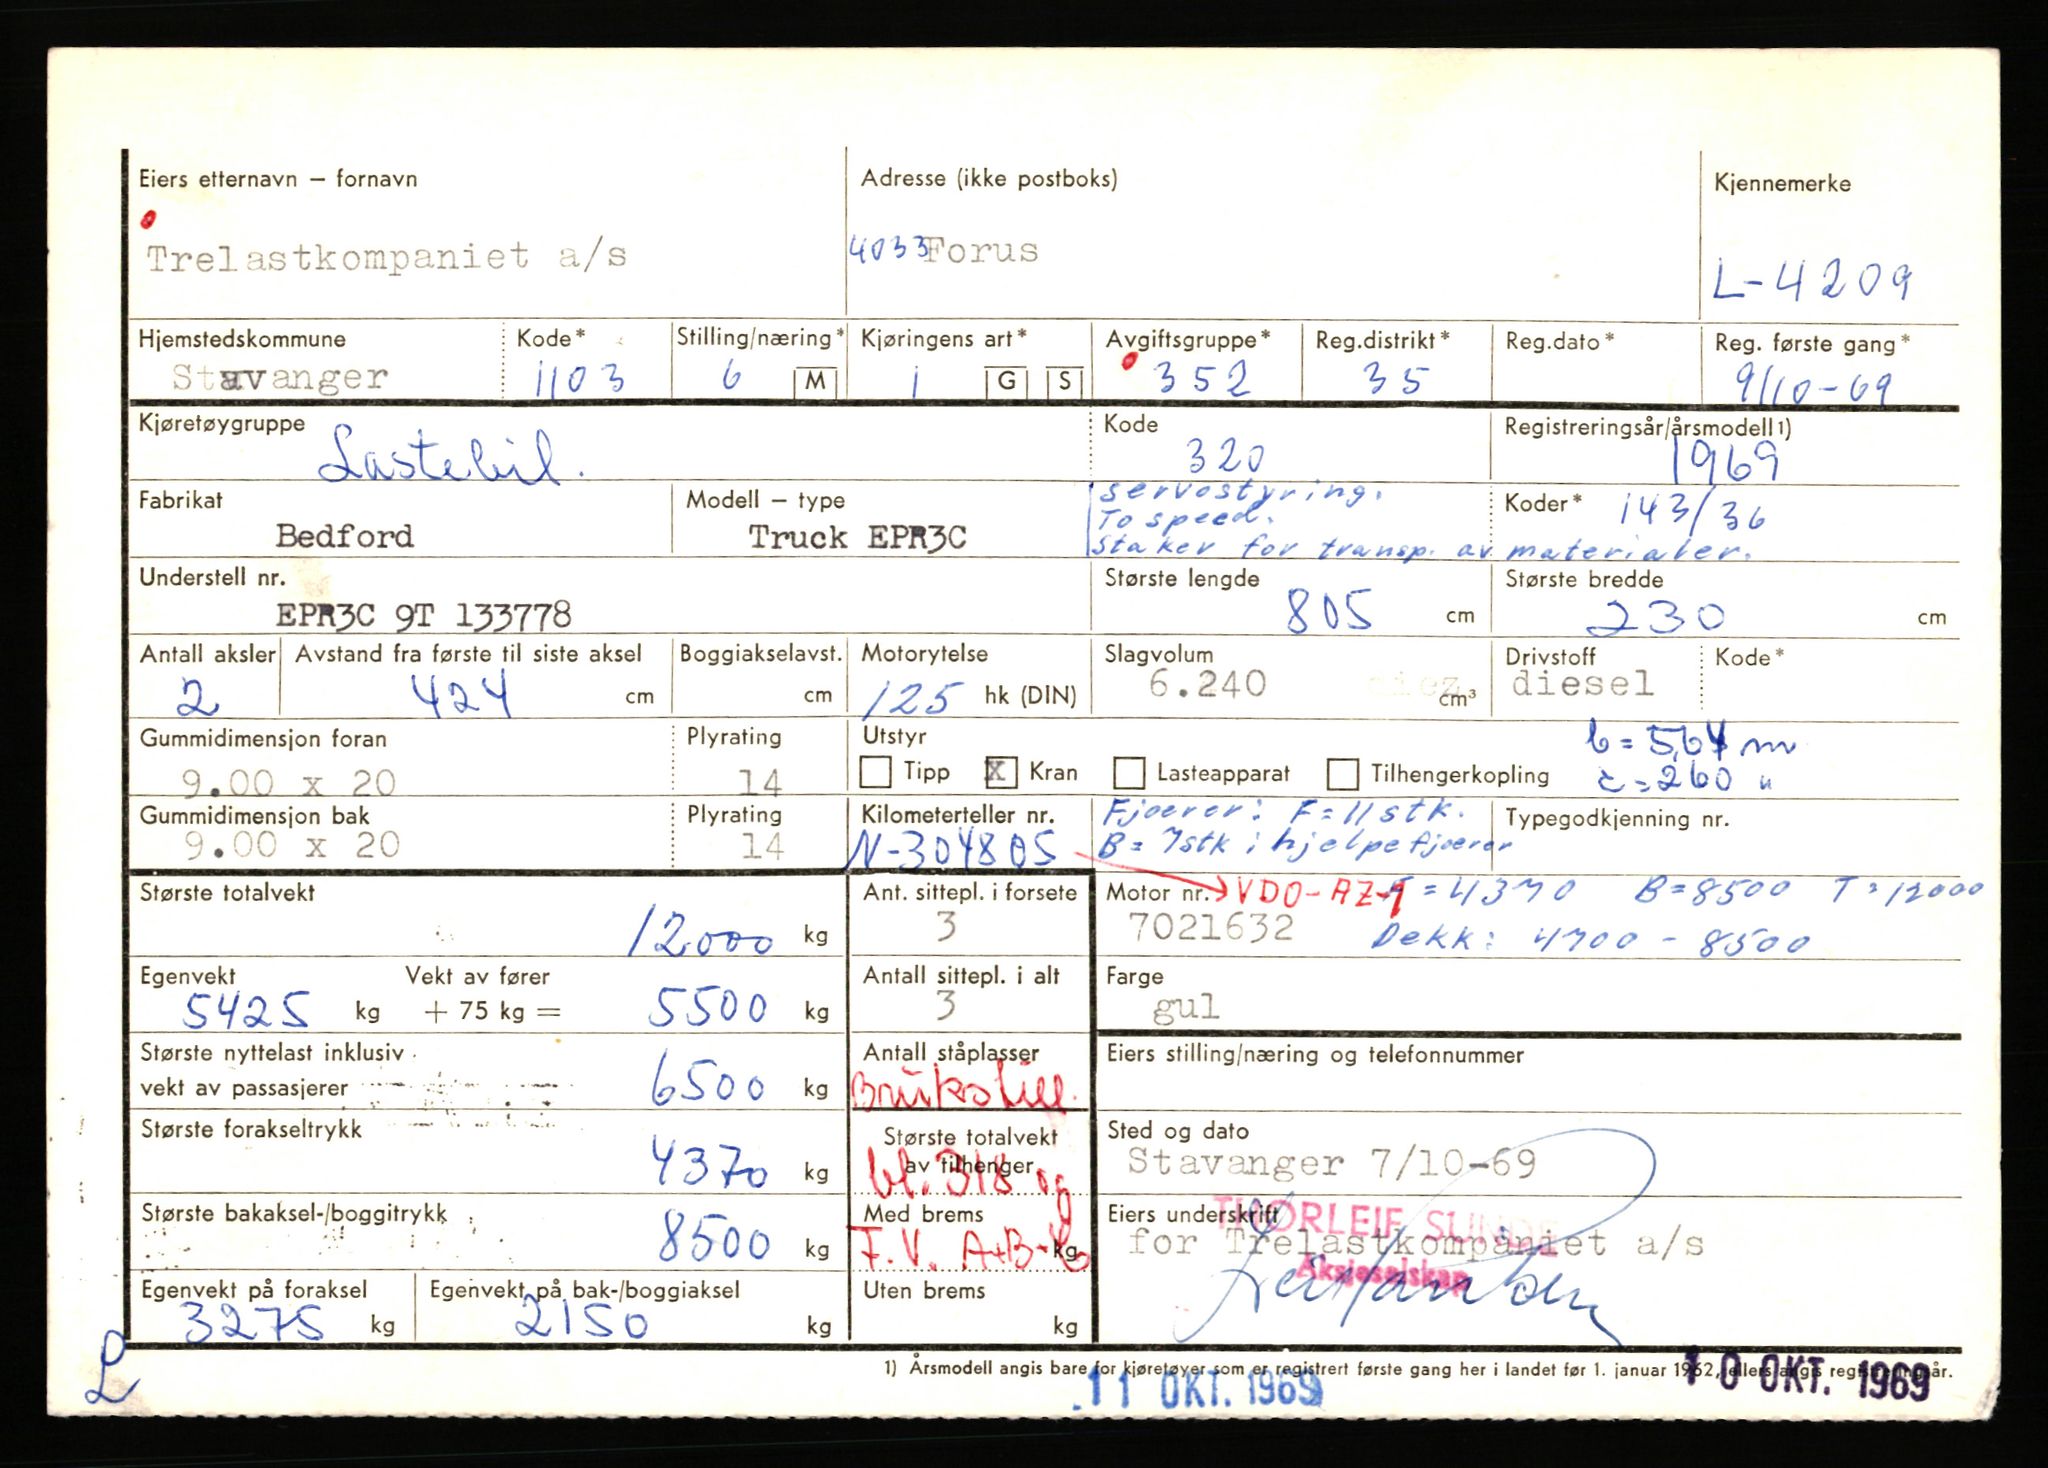 Eiers etternavn – fornavn
Trelastkompaniet a/s
Adresse (ikke postboks)
4033 Forus
Kjennemerke
L-4209
Hjemstedskommune
Stavanger
Kode*
1103
Stilling/næring*
6 M
Kjøringens art*
1 G S
Avgiftsgruppe*
352
Reg.distrikt*
35
Reg.dato*
Reg. første gang*
9/10-69
Kjøretøygruppe
Lastebil.
Kode
320
Registreringsår/årsmodell 1)
1969
Fabrikat
Bedford
Modell – type
Truck EPR3C
servostyring.
To speed.
Staker for transp. av materialer.
Koder* 143/36
Understell nr.
EPR3C 9T 133778
Største lengde
805 cm
Største bredde
230 cm
Antall aksler
2
Avstand fra første til siste aksel
424 cm
Boggiakselavst.
cm
Motorytelse
125 hk (DIN)
Slagvolum
6.240 cm³
Drivstoff
diesel
Kode*
Gummidimensjon foran
9.00 x 20
Plyrating
14
Utstyr
Tipp X Kran Lasteapparat Tilhengerkopling
b = 5,64 m
c = 260 "
Gummidimensjon bak
9.00 x 20
Plyrating
14
Kilometerteller nr.
N-304805
Fjærer: F = 11 stk.
B = 7 stk i hjelpefjærer
Typegodkjenning nr.
Største totalvekt
12000 kg
Ant. sittepl. i forsete
3
Motor nr. VDO-AZ-9 F = 4370 B = 8500 T = 12000
7021632 Dekk: 4700 - 8500
Egenvekt
5425 kg
Vekt av fører
+ 75 kg = 5500 kg
Antall sittepl. i alt
3
Farge
gul
Største nyttelast inklusiv
vekt av passasjerer 6500 kg
Antall ståplasser
Brukstill.
Eiers stilling/næring og telefonnummer
Største forakseltrykk
4370 kg
Største totalvekt
av tilhenger
bl. 318 og
Sted og dato
Stavanger 7/10-69
Største bakaksel-/boggitrykk
8500 kg
Med brems
F.V. A+B- kg
Eiers underskrift
THORLEIF SUNDE
for Trelastkompaniet a/s
Aksjeselskap
Egenvekt på foraksel
3275 kg
Egenvekt på bak-/boggiaksel
2150 kg
Uten brems
kg
L
1) Årsmodell angis bare for kjøretøyer som er registrert første gang her i landet før 1. januar 1962, ellers angis registreringsår.
11 OKT. 1969
10 OKT. 1969